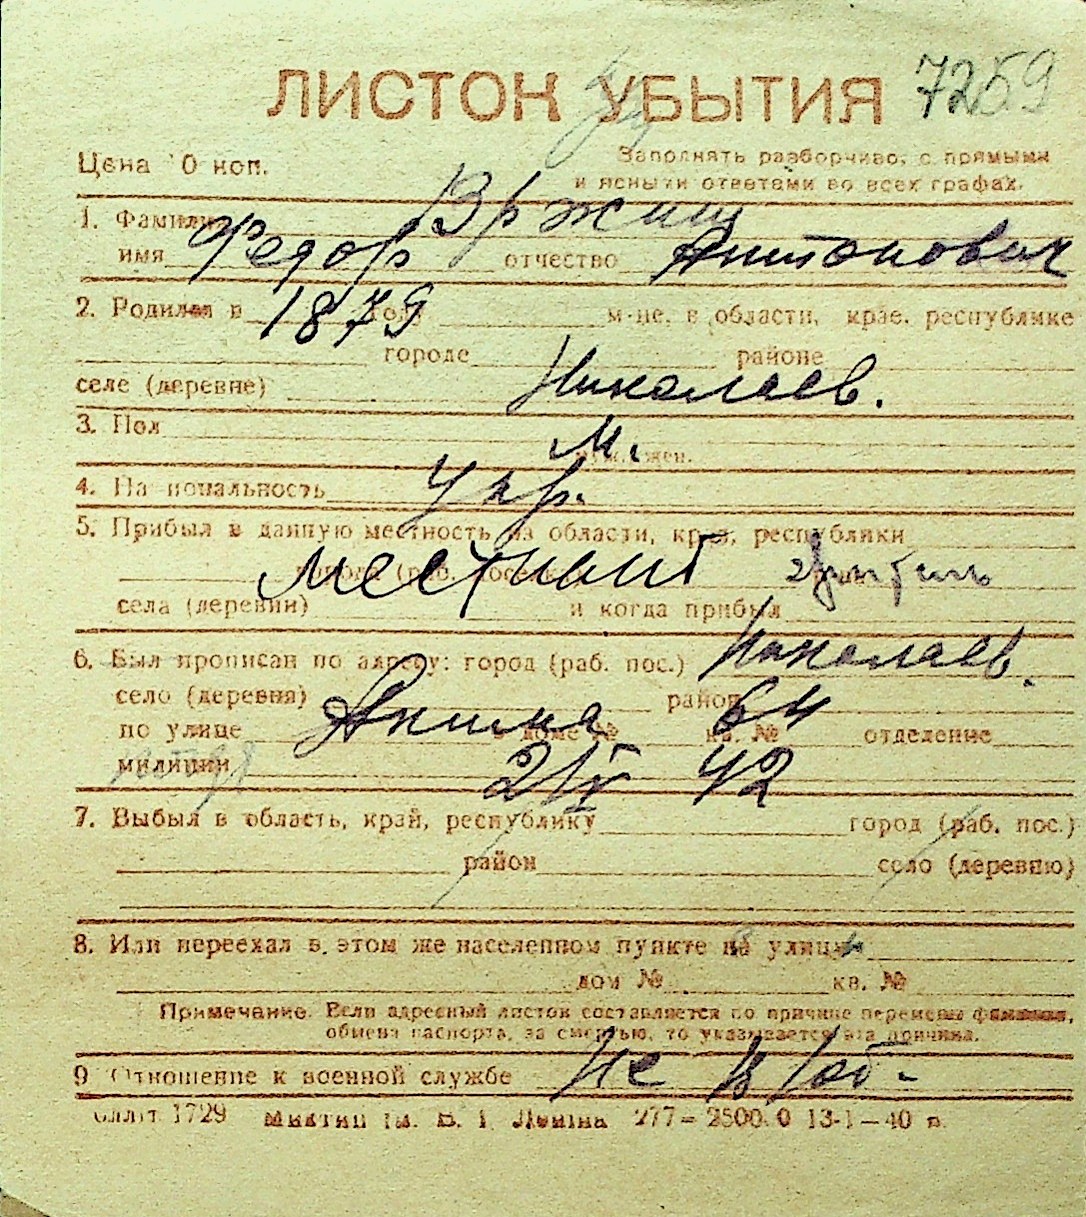 ЛИСТОК УБЫТИЯ 7259
Цена 10 коп. Заполнять разборчиво, с прямыми
и ясными ответами во всех графах.
1. Фамилия Вржищ
имя Федор отчество Антонович
2. Родился в 1879 году м-це, в области, крае, республике
городе районе
селе (деревне) Николаев.
3. Пол М.
муж., жен.
4. Национальность Укр.
5. Прибыл в данную местность из области, края, республики
местный житель
села (деревни) и когда прибыл
6. Был прописан по адресу: город (раб. пос.) Николаев.
село (деревня) район
по улице в доме № 64 кв. № отделение
милиции 21 42
7. Выбыл в область, край, республику город (раб. пос.)
район село (деревню)
8. Или переехал в этом же населенном пункте на улицу
дом № кв. №
Примечание. Если адресный листок составляется по причине перемены фамилии,
обмена паспорта, за смертью, то указывается эта причина.
9 Отношение к военной службе Не в/об.
1729 В. І. Леніна 277—2500.0 13-1—40 р.